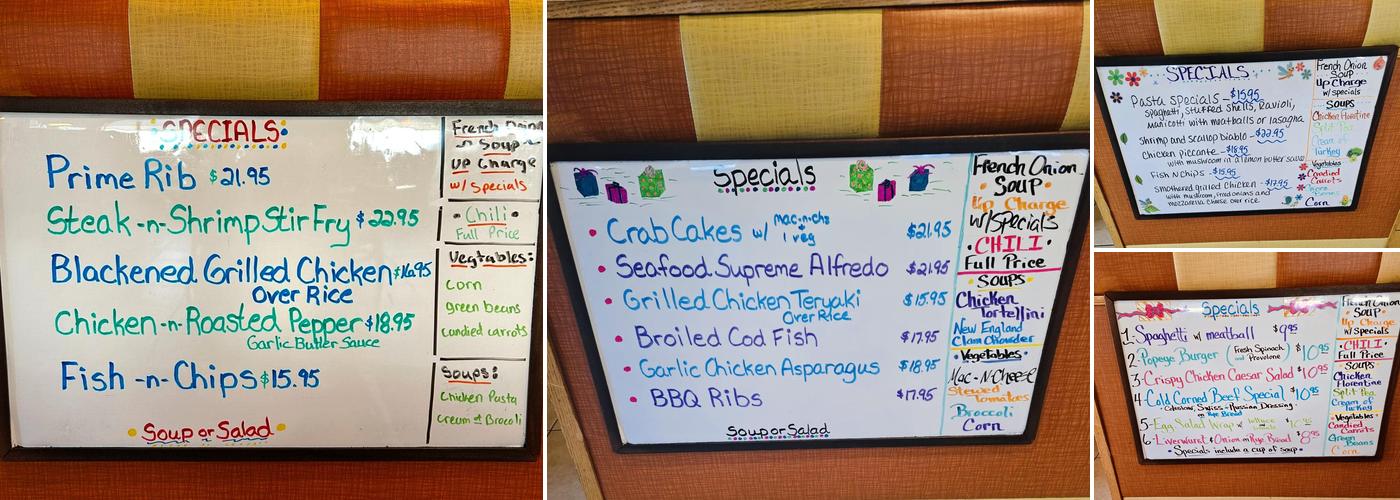 SPECIALS
Prime Rib $21.95
Steak-n-Shrimp Stir Fry $22.95
Blackened Grilled Chicken $16.95
Over Rice
Chicken-n-Roasted Pepper $18.95
Garlic Butter Sauce
Fish-n-Chips $15.95
Soup or Salad
French Onion
Soup
Up Charge
w/ Specials
Chili
Full Price
Vegtables:
corn
green beans
candied carrots
Soups:
Chicken Pasta
Cream of Brocoli
Specials
Crab Cakes w/ mac-n-chs
+
1 veg $21.95
Seafood Supreme Alfredo $21.95
Grilled Chicken Teryaki $15.95
Over Rice
Broiled Cod Fish $17.95
Garlic Chicken Asparagus $18.95
BBQ Ribs $17.95
Soup or Salad
French Onion
SOUP
Up Charge
w/Specials
CHILI
Full Price
SOUPS
Chicken
Tortellini
New England
Clam Chowder
Vegetables
Mac-N-Cheese
Stewed
Tomatoes
Broccoli
Corn
SPECIALS
Pasta Specials - $15.95
Spaghetti, Stuffed Shells, Ravioli,
Manicotti with meatballs or lasagna
Shrimp and Scallop Diablo - $22.95
Chicken piccante - $18.95
with mushroom in a lemon butter sauce
Fish N Chips - $15.95
Smothered grilled Chicken - $17.95
with mushroom, fried onions and
mozzarella cheese over rice.
French Onion
Soup
Up Charge
w/ specials
SOUPS
Chicken Florentine
Split Pea
Cream of
Turkey
Vegetables
Candied
Carrots
Green
Beans
Corn
Specials
1. Spaghetti w/ meatball $9.95
2. Popeye Burger (Fresh Spinach
and Provolone) $10.95
3. Crispy Chicken Caesar Salad $10.95
4. Cold Corned Beef Special $10.95
Coleslaw, Swiss - Russian Dressing
on Rye Bread
5- Egg Salad Wrap w/ lettuce
6- Liverwurst & Onion on Rye Bread $8.95
Specials include a cup of soup
French Onion
SOUP
Up Charge
w/ Specials
CHILI
Full Price
SOUPS
Chicken
Florentine
Split Pea
Cream of
Turkey
Vegetables
Candied
Carrots
Green
Beans
Corn